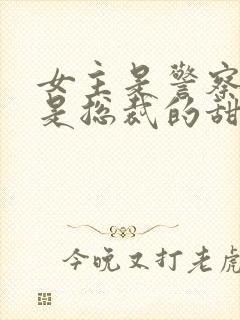 女主是警察
是总裁的甜
今晚又打老虎